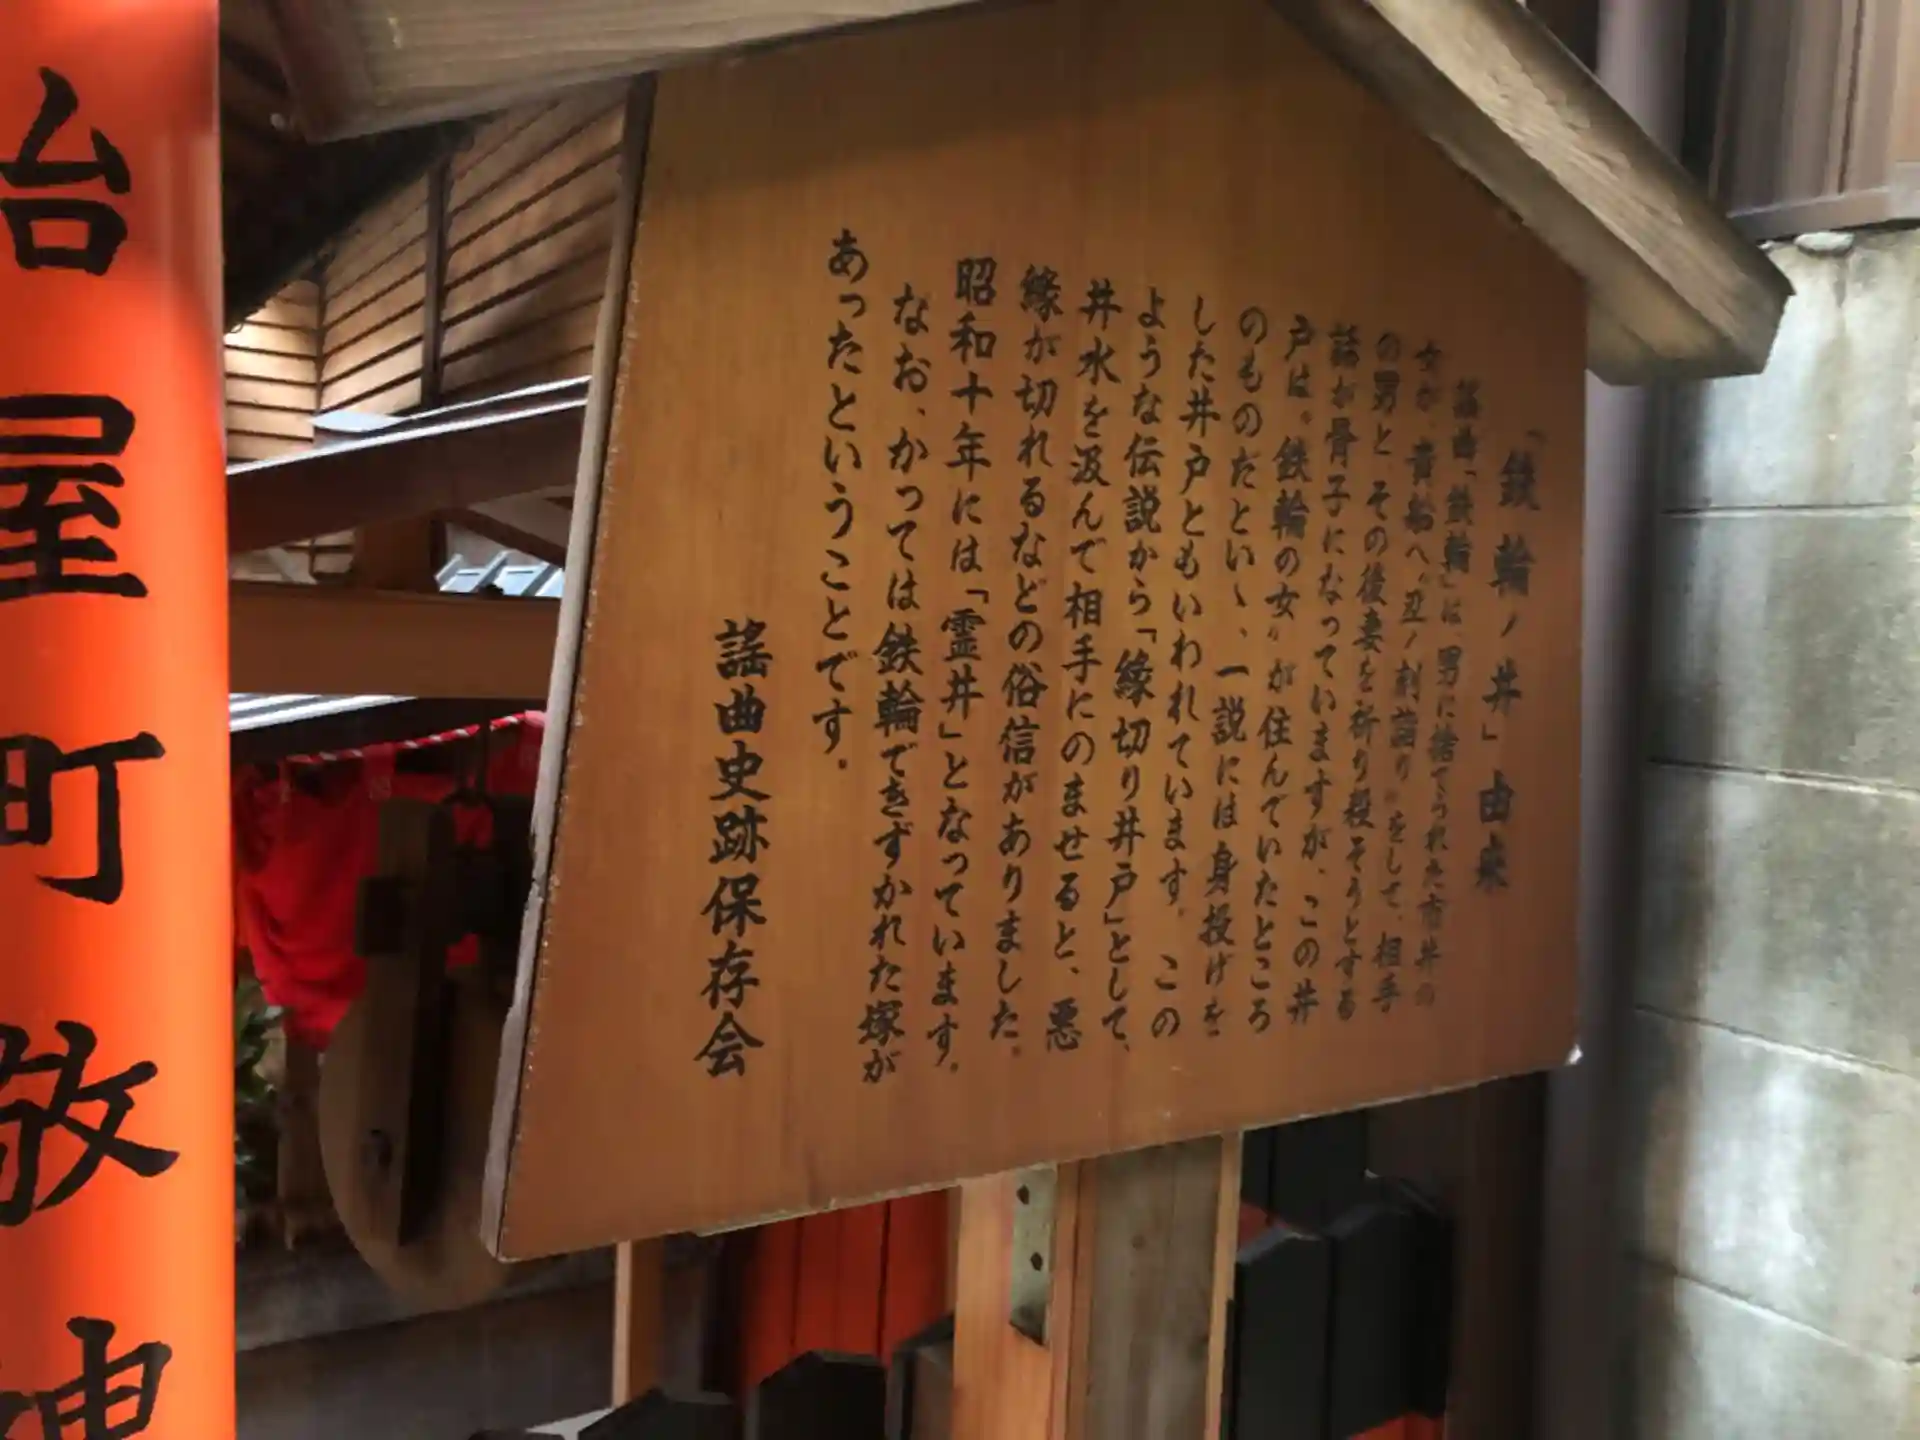 「鉄輪ノ井」由来
謡曲「鉄輪」は、男に捨てられた市井の
女が、貴船へ〝丑ノ刻詣り〟をして、相手
の男と、その後妻を祈り殺そうとする
話が骨子になっていますが、この井
戸は〝鉄輪の女〟が住んでいたところ
のものだといい、一説には身投げを
した井戸ともいわれています。この
ような伝説から「縁切り井戸」として、
井水を汲んで相手にのませると、悪
縁が切れるなどの俗信がありました。
昭和十年には「霊井」となっています。
なお、かっては鉄輪できずかれた塚が
あったということです。
謡曲史跡保存会
冶屋町敬神